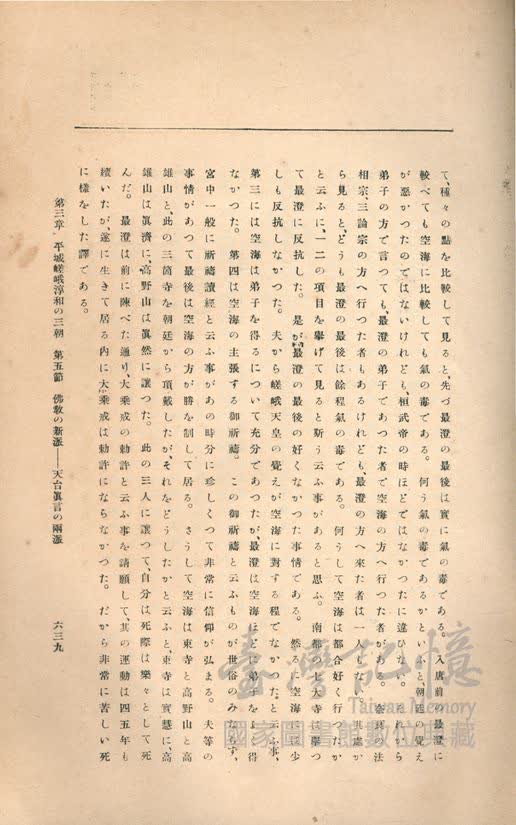 て、種々の點を比較して見ると、先づ最澄の最後は實に氣の毒である。入唐前の最澄に
較べても空海に比較しても氣の毒である。何う氣の毒であるかといふと、朝廷の覺え
が惡かつたのではないけれども、桓武帝の時ほどではなかつたに違ひない。それから
弟子の方で言つても、最澄の弟子であつた者で空海の方へ行つた者がある。奈良の法
相宗、三論宗の方へ行つた者もあるけれども、最澄の方へ來た者は一人もない。其處か
ら見ると、どうも最澄の最後は餘程氣の毒である。何うして空海は都合好く行つたか
と云ふに、一二の項目を擧げて見ると斯う云ふ事があると思ふ。南都の七大寺は擧つ
て最澄に反抗した。是が最澄の最後の好くなかつた事情である。然るに空海には少
しも反抗しなかつた。夫から嵯峨天皇の覺えが空海に對する程でなかつたと云ふ事、
第三には空海は弟子を得るについて充分であつたが、最澄は空海ほどに弟子を得
なかつた。第四は空海の主張する御祈禱。この御祈禱と云ふものが世俗のみならず、
宮中一般に祈禱讀經と云ふ事があの時分に珍しくつて非常に信仰が弘まる。夫等の
事情があつて最後は空海の方が勝を制して居る。さうして空海は東寺と高野山と高
雄山と、此の三箇寺を朝廷から頂戴したが、それをどうしたかと云ふと、東寺は實慧に、高
雄山は眞濟に、高野山は眞然に讓つた。此の三人に讓つて、自分は死際は樂々として死
んだ。最澄は前に陳べた通り、大乘戒の勅許と云ふ事を請願して、其の運動は四五年も
續いたが、遂に生きて居る内に大乘戒は勅許にならなかつた。だから非常に苦しい死
に樣をした譯である。
第三章 平城嵯峨淳和の三朝 第五節 佛敎の新派——天台眞言の兩派 六三九
臺灣記憶
Taiwan Memory
國家圖書館數位典藏